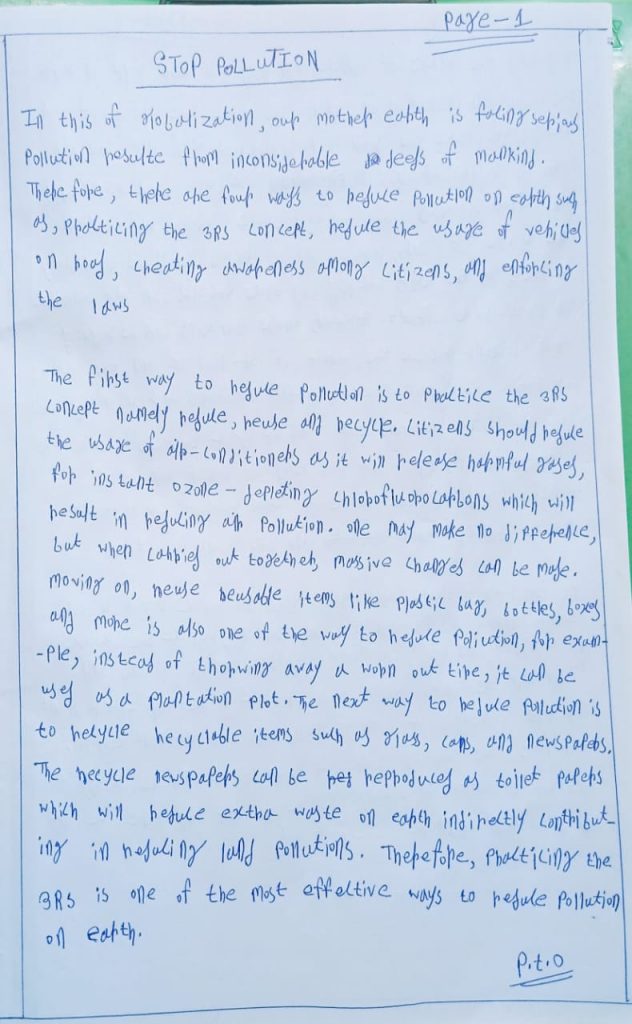 Page-1
STOP POLLUTION
In this of globalization, our mother earth is facing serious
Pollution resulte from inconsiderable deeds of mankind.
There fore, there are four ways to reduce Pollution on earth such
as, Practicing the 3RS concept, reduce the usage of vehicles
on road, creating awareness among citizens, and enforcing
the laws
The first way to reduce Pollution is to Practice the 3RS
concept namely reduce, reuse and recycle. Citizens should reduce
the usage of air-conditioners as it will release harmful gases,
for instant ozone-depleting chlorofluorocarbons which will
result in reducing air Pollution. one may make no difference,
but when carried out together, massive changes can be made.
Moving on, reuse reusable items like plastic bags, bottles, boxes
and more is also one of the way to reduce Pollution, for exam-
-ple, instead of throwing away a worn out tire, it can be
used as a plantation plot. The next way to reduce pollution is
to recycle recyclable items such as glass, cans, and newspapers.
The recycle newspapers can be reproduced as toilet papers
which will reduce extra waste on earth indirectly contribut-
ing in reducing land pollutions. Therefore, practicing the
3RS is one of the most effective ways to reduce Pollution
on earth.
P.t.o